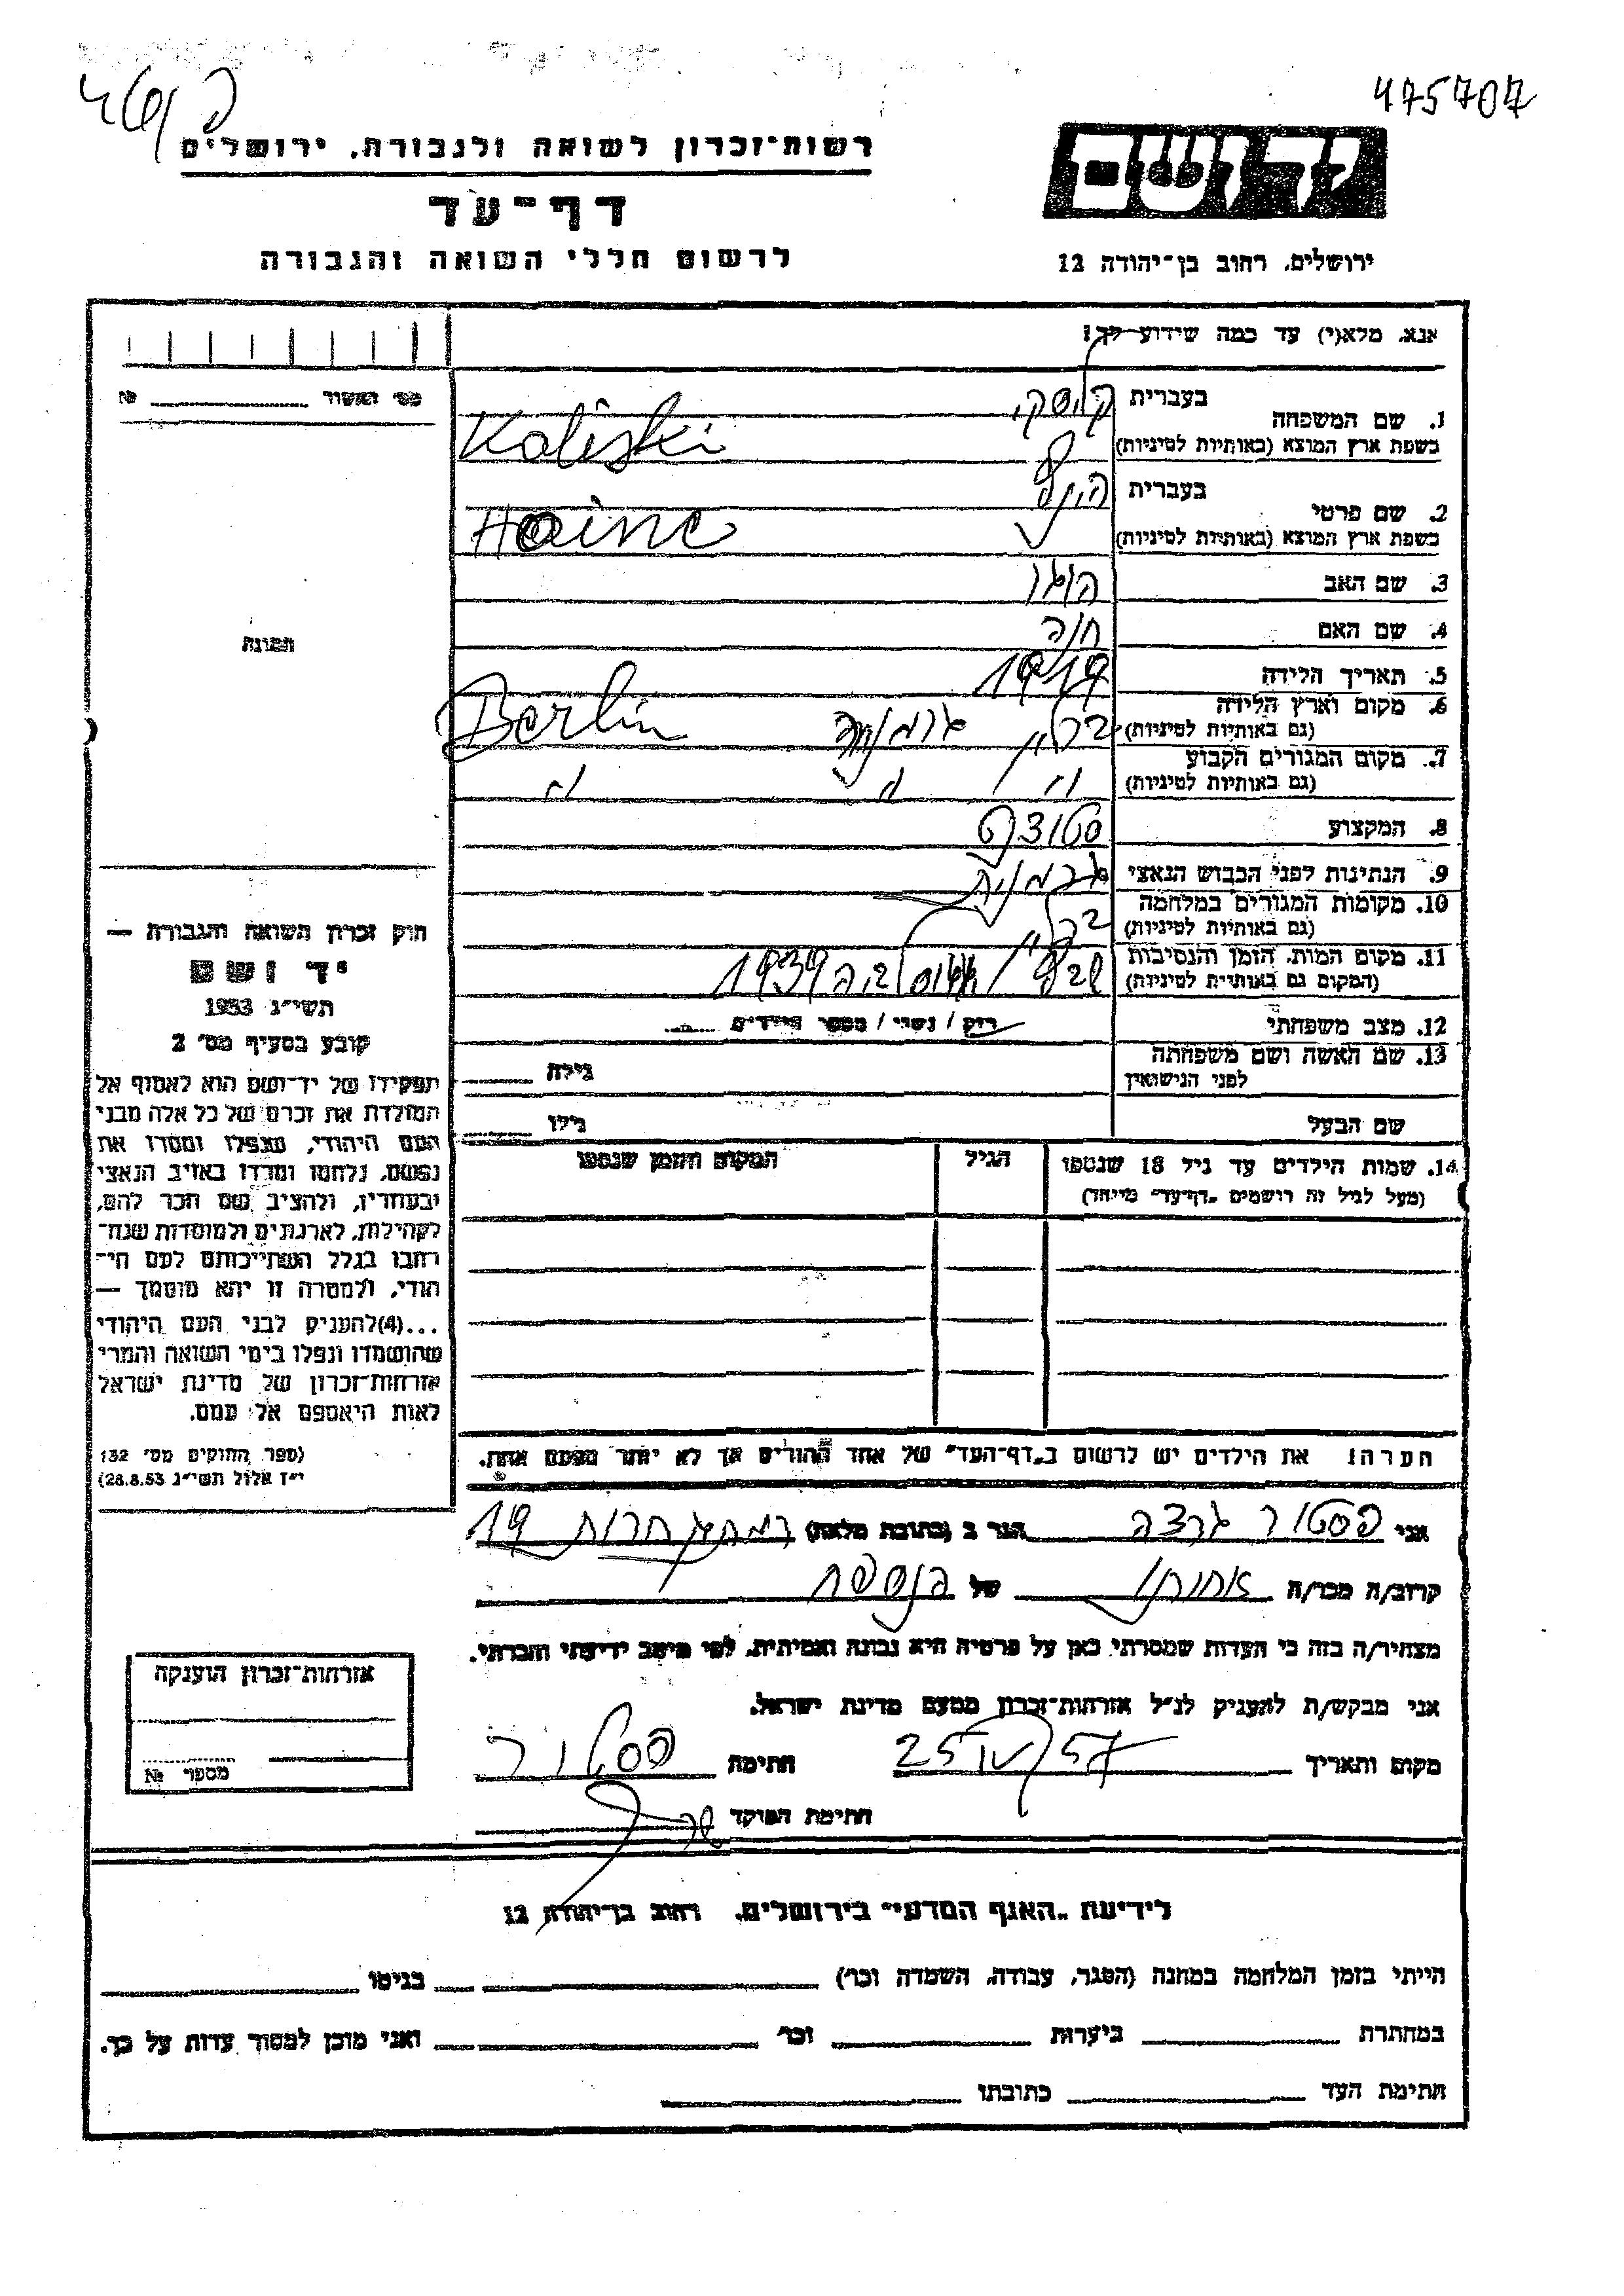 475707
רשות־זכרון לשואה ולגבורה, ירושלים
יד ושם
דף־עד
לרשום חללי השואה והגבורה
ירושלים, רחוב בן־יהודה 12
אנא, מלא(י) עד כמה שידוע לך!
מס' האשור № 
1. שם המשפחה בעברית קליסקי
בשפת ארץ המוצא (באותיות לטיניות) Kaliski
2. שם פרטי בעברית
בשפת ארץ המוצא (באותיות לטיניות) Haine
3. שם האב הוגו
4. שם האם חנה
תמונה
5. תאריך הלידה 1919
6. מקום וארץ הלידה ברלין גרמניה Berlin
(גם באותיות לטיניות)
7. מקום המגורים הקבוע " " "
(גם באותיות לטיניות)
8. המקצוע סטודנט
9. הנתינות לפני הכבוש הנאצי גרמנית
10. מקומות המגורים במלחמה ברלין
(גם באותיות לטיניות)
11. מקום המות, הזמן והנסיבות 1939
(המקום גם באותיות לטיניות)
12. מצב משפחתי רוק / נשוי / מספר הילדים
13. שם האשה ושם משפחתה גילה
לפני הנישואין
שם הבעל גילו
14. שמות הילדים עד גיל 18 שנספו הגיל המקום והזמן שנספו
(מעל לגיל זה רושמים "דף־עד" מיוחד)
חוק זכרון השואה והגבורה —
יד ושם
תשי"ג 1953
קובע בסעיף מס' 2
תפקידו של יד־ושם הוא לאסוף אל
המולדת את זכרם של כל אלה מבני
העם היהודי, שנפלו ומסרו את
נפשם, נלחמו ומרדו באויב הנאצי
ובעוזריו, ולהציב שם וזכר להם,
לקהילות, לארגונים ולמוסדות שנח־
רבו בגלל השתייכותם לעם הי־
הודי, ולמטרה זו יהא מוסמך —
...(4) להעניק לבני העם היהודי
שהושמדו ונפלו בימי השואה והמרי
אזרחות־זכרון של מדינת ישראל
לאות היאספם אל עמם.
(ספר החוקים מס' 132
י"ז אלול תשי"ג 28.8.53)
הערה: את הילדים יש לרשום ב"דף־העד" של אחד ההורים אך לא יותר מפעם אחת.
אני פסטור גרצה הגר ב (כתובת מלאה) רמת גן חרות 19
קרוב/ה מכר/ה אחותו של הנספה
מצהיר/ה בזה כי העדות שמסרתי כאן על פרטיה היא נכונה ואמיתית, לפי מיטב ידיעתי והכרתי.
אני מבקש/ת להעניק לנ"ל אזרחות־זכרון מטעם מדינת ישראל.
מקום ותאריך 25/IV/57 חתימה פסטור
חתימת הפוקד
אזרחות־זכרון הוענקה
מספר №
לידיעת "האגף המדעי" בירושלים, רחוב בן־יהודה 12
הייתי בזמן המלחמה במחנה (הסגר, עבודה, השמדה וכו') בגיטו
במחתרת ביערות וכו' ואני מוכן למסור עדות על כך.
חתימת העד כתובתו